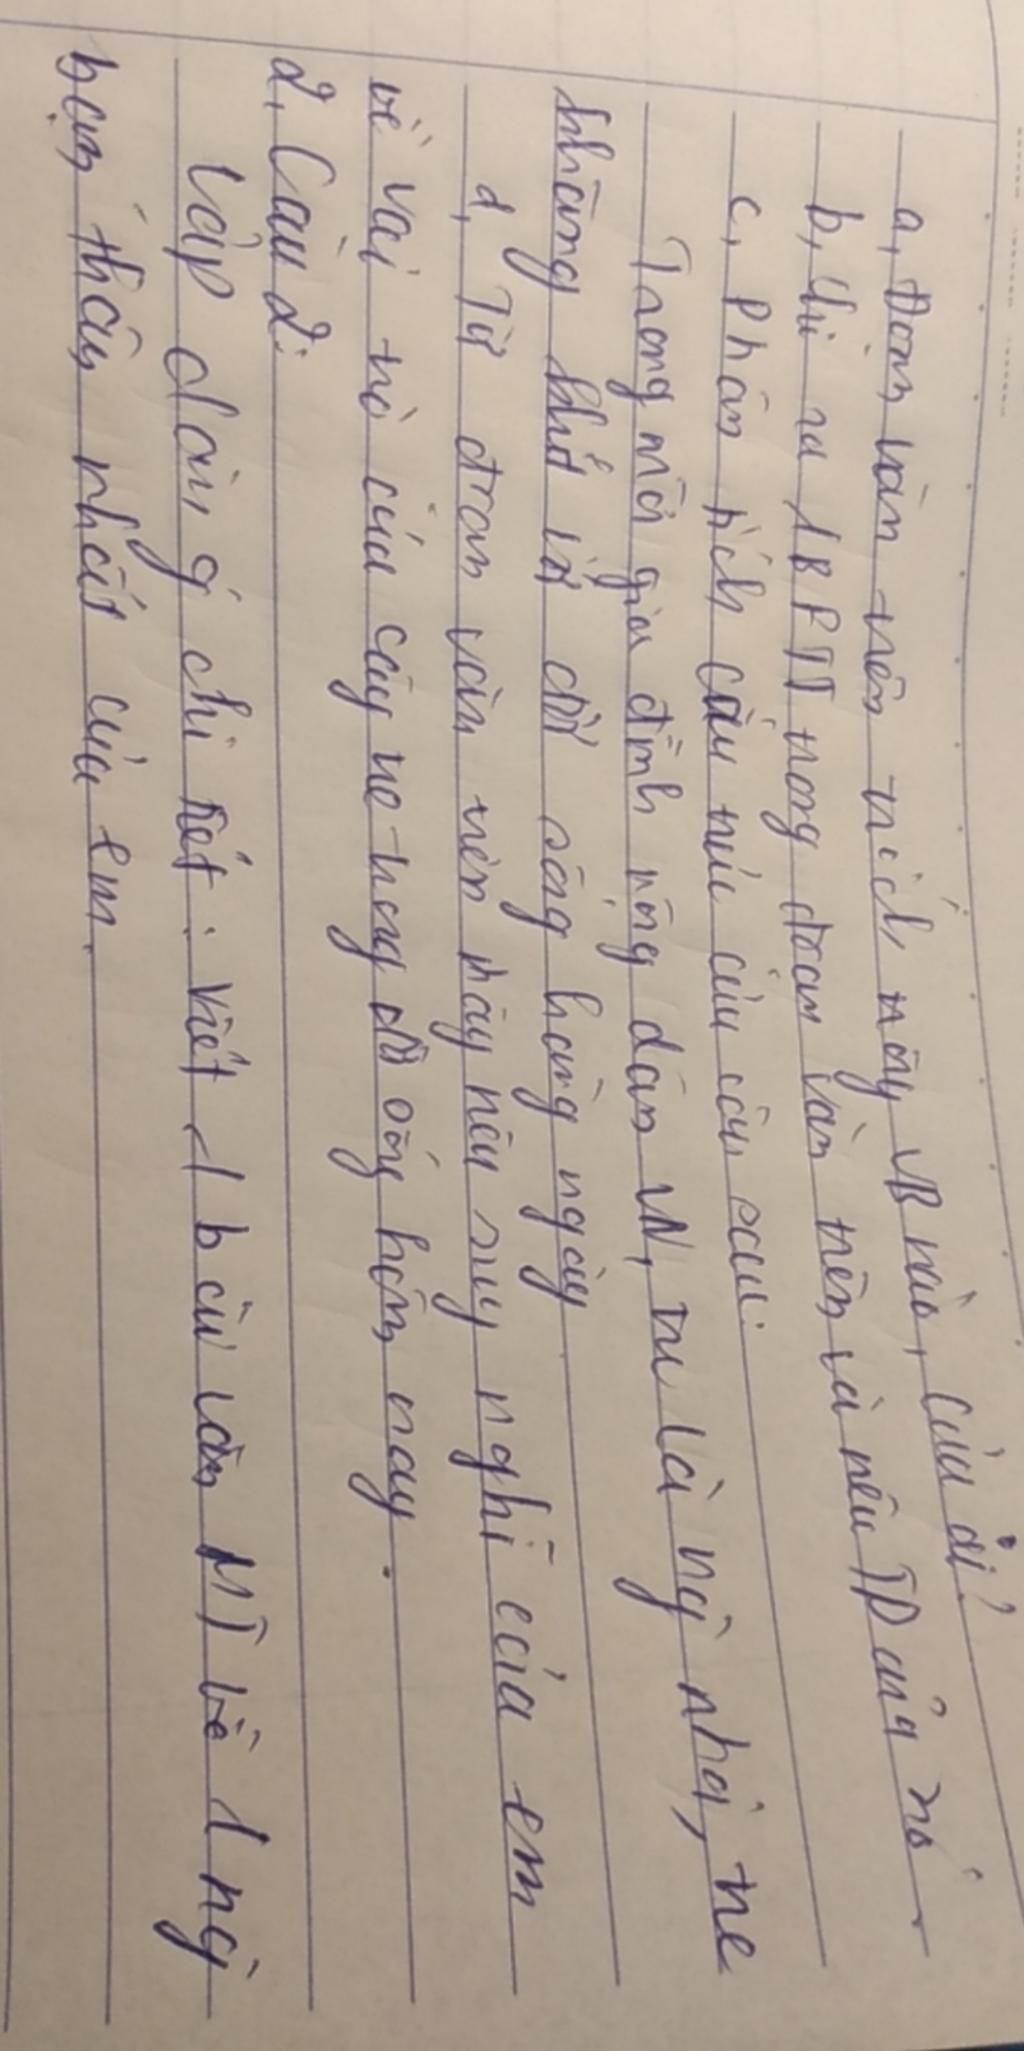 a, Đoạn văn trên trích trong VB nào, của ai?
b, Chỉ ra 1 BPTT trong đoạn văn trên và nêu TD của nó
c, Phân tích cấu trúc của câu sau:
Trong mỗi gia đình nông dân VN, tre là ng nhà, tre
khăng khít với đời sống hàng ngày
d, Từ đoạn văn trên hãy nêu suy nghĩ của em
về vai trò của cây tre trong đời sống hôm nay.
2, Câu 2:
Lập dàn ý chi tiết: Viết 1 bài văn MT về 1 ng
bạn thân nhất của em.